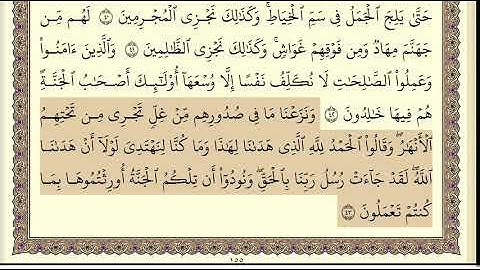 حَتَّىٰ يَلِجَ ٱلْجَمَلُ فِى سَمِّ ٱلْخِيَاطِ ۚ وَكَذَٰلِكَ نَجْزِى ٱلْمُجْرِمِينَ ٤٠ لَهُم مِّن
جَهَنَّمَ مِهَادٌ وَمِن فَوْقِهِمْ غَوَاشٍ ۚ وَكَذَٰلِكَ نَجْزِى ٱلظَّٰلِمِينَ ٤١ وَٱلَّذِينَ ءَامَنُوا۟
وَعَمِلُوا۟ ٱلصَّٰلِحَٰتِ لَا نُكَلِّفُ نَفْسًا إِلَّا وُسْعَهَآ أُو۟لَٰٓئِكَ أَصْحَٰبُ ٱلْجَنَّةِ ۖ
هُمْ فِيهَا خَٰلِدُونَ ٤٢ وَنَزَعْنَا مَا فِى صُدُورِهِم مِّنْ غِلٍّ تَجْرِى مِن تَحْتِهِمُ
ٱلْأَنْهَٰرُ ۖ وَقَالُوا۟ ٱلْحَمْدُ لِلَّهِ ٱلَّذِى هَدَىٰنَا لِهَٰذَا وَمَا كُنَّا لِنَهْتَدِىَ لَوْلَآ أَنْ هَدَىٰنَا
ٱللَّهُ ۖ لَقَدْ جَآءَتْ رُسُلُ رَبِّنَا بِٱلْحَقِّ ۖ وَنُودُوٓا۟ أَن تِلْكُمُ ٱلْجَنَّةُ أُورِثْتُمُوهَا بِمَا
كُنتُمْ تَعْمَلُونَ ٤٣
١٥٥